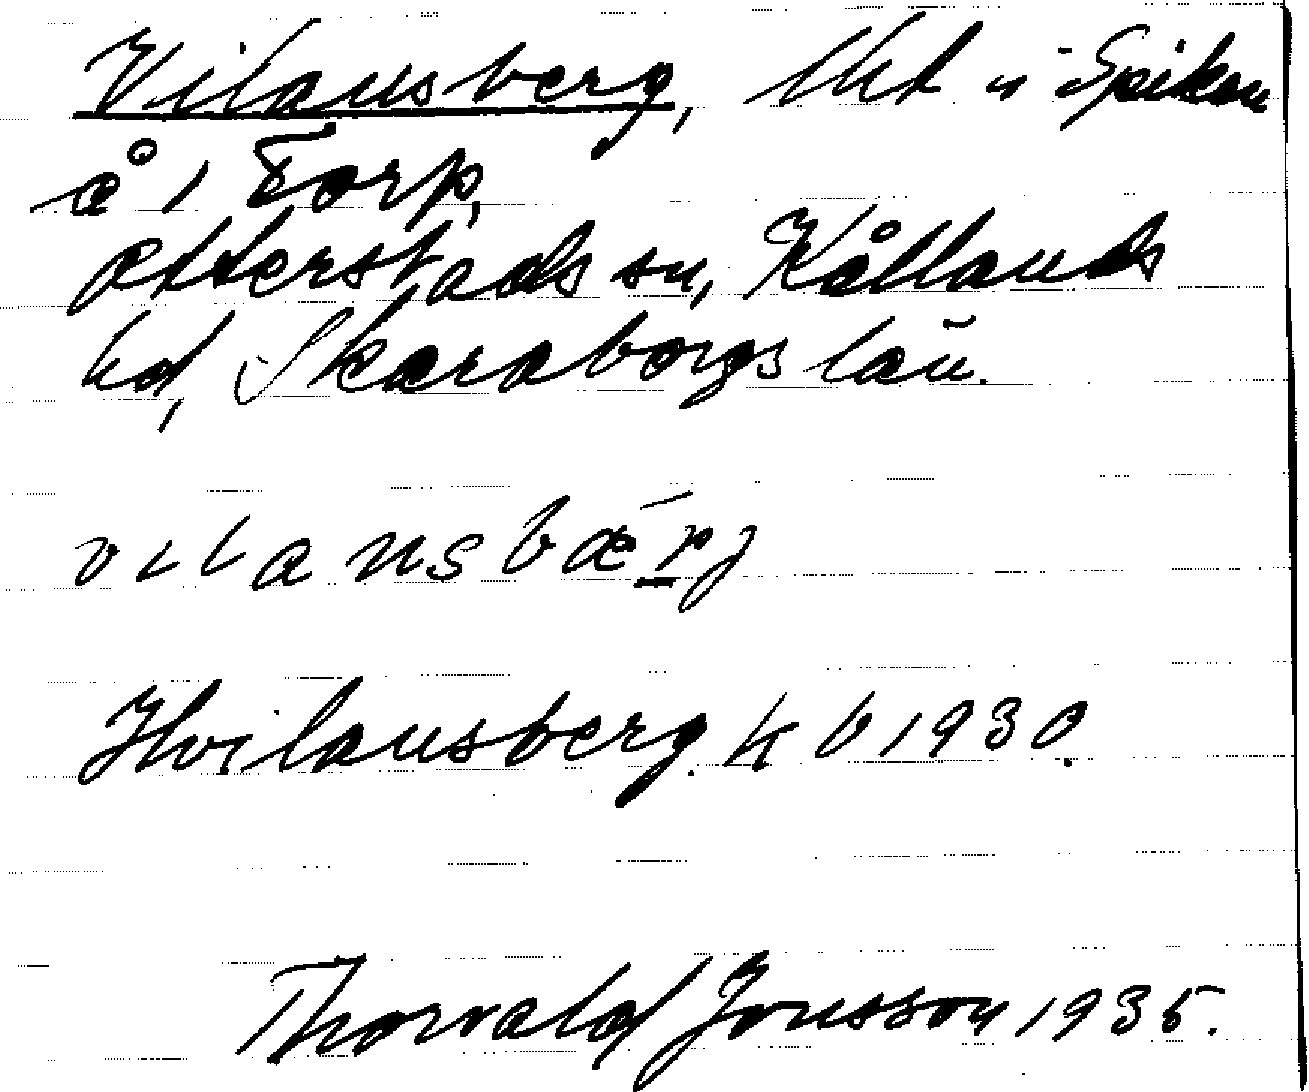 Vilansberg, lht i Spiken
å 1 Torp,
Otterstads sn, Kållands
hd, Skaraborgs län.
vilansbærj
Hvilansberg. k b 1930.
Thorvald Jonsson 1935.